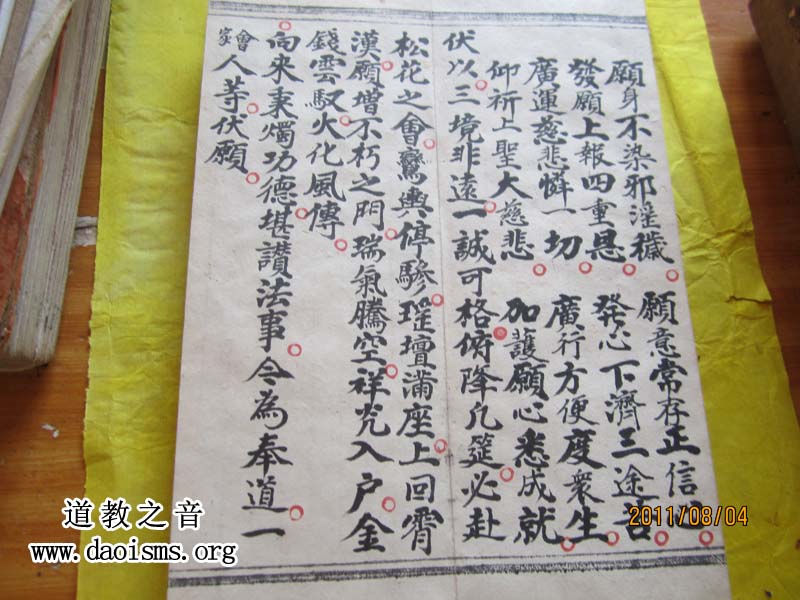 願身不染邪淫穢 願意常存正信
發願上報四重恩 發心下濟三途苦
廣運慈悲憐一切 廣行方便度衆生
仰祈上聖大慈悲 加護願心悉成就
伏以三境非遠一誠可格俯降凡筵必赴
松花之會鸞輿停驂瑤壇滿座上回霄
漢願增不朽之門瑞氣騰空祥光入户金
錢雲馭火化風傳
向来秉燭功德堪讚法事今為奉道一
會家人等伏願
2011/08/04
道教之音
www.daoisms.org